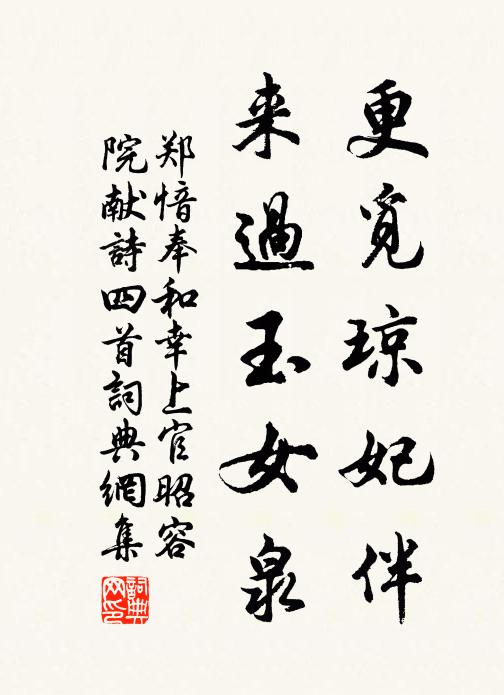 更觅琼妃伴
来過玉女泉
郑愔奉和幸上官昭容
院献詩四首詞典網集
詞典网印